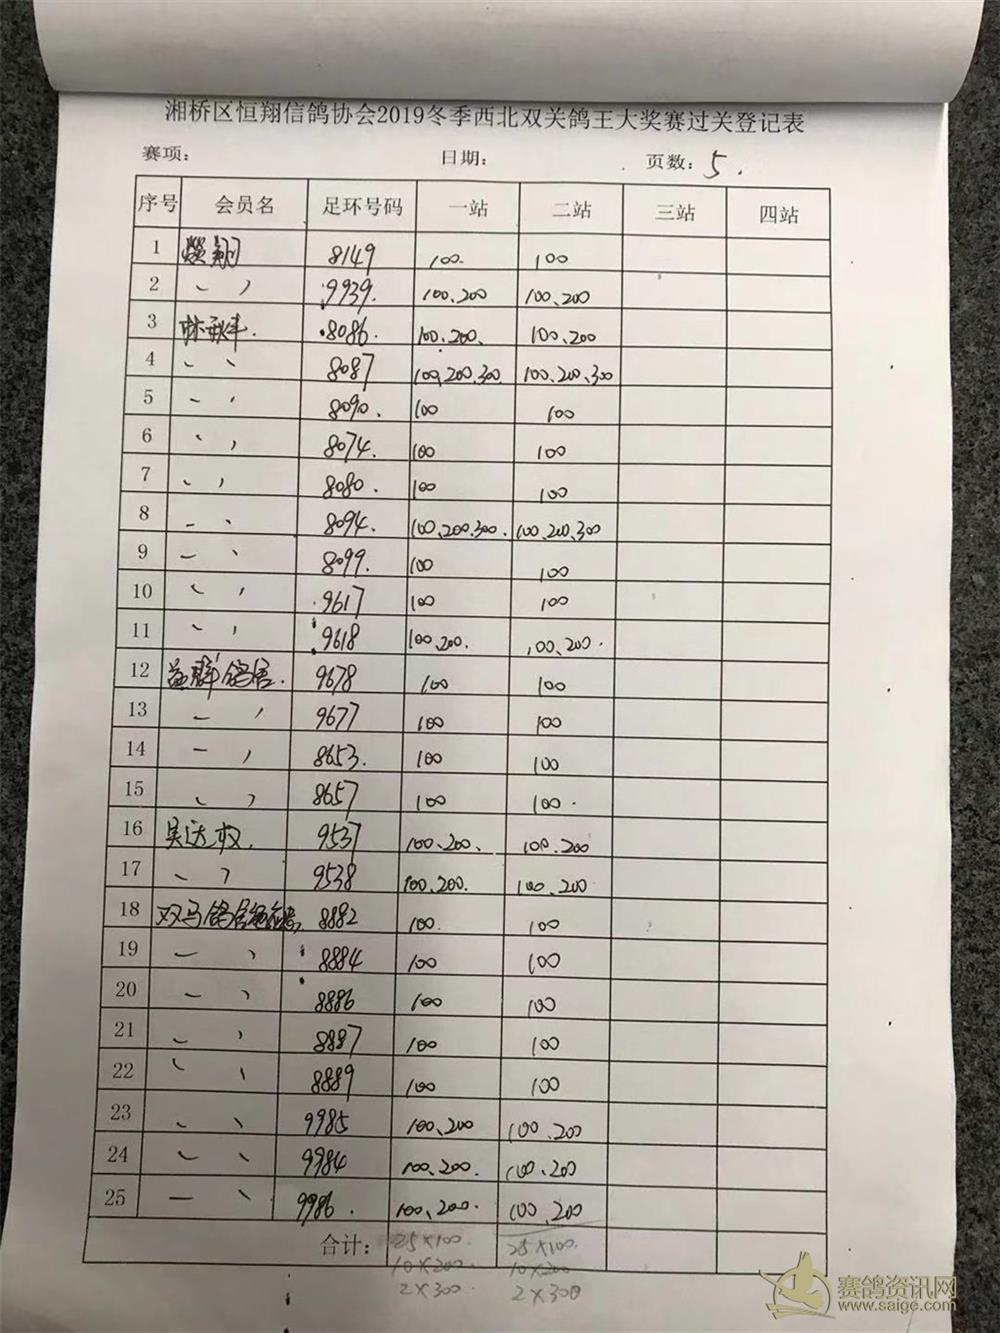 湘桥区恒翔信鸽协会2019冬季西北双关鸽王大奖赛过关登记表
赛项: 日期: 页数: 5.
序号 会员名 足环号码 一站 二站 三站 四站
1 翔 8149 100. 100
2 〃 9939. 100、200 100、200
3 林秋丰. 8086. 100、200. 100、200
4 〃 8087 100,200、300 100、200、300
5 〃 8090. 100 100
6 〃 8074. 100 100
7 〃 8080. 100 100
8 〃 8094. 100、200、300. 100、200、300
9 〃 8099. 100 100
10 〃 9617 100 100
11 〃 9618 100、200. 100、200.
12 益群鸽居. 9678 100 100
13 〃 9677 100 100
14 〃 8653. 100 100
15 〃 8657 100 100.
16 吴达权. 9537 100、200、 100、200
17 〃 9538 100、200. 100、200
18 双马鸽舍 8882 100. 100
19 〃 8884 100 100
20 〃 8886 100 100
21 〃 8887 100 100
22 〃 8889 100 100
23 〃 9985 100、200 100、200
24 〃 9984 100、200. 100、200
25 〃 9986. 100、200. 100、200
合计: 25×100. 25×100.
10×200. 10×200
2×300. 2×300
赛鸽资讯网
www.saige.com